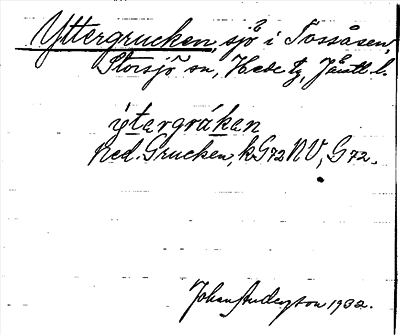 Yttergrucken, sjö i Tossåsen,
Storsjö sn, Hede tg, Jämtl. l.
ýtergråkan
ned. Grucken, k G72 NV, G72.
Johan Anderson 1932.